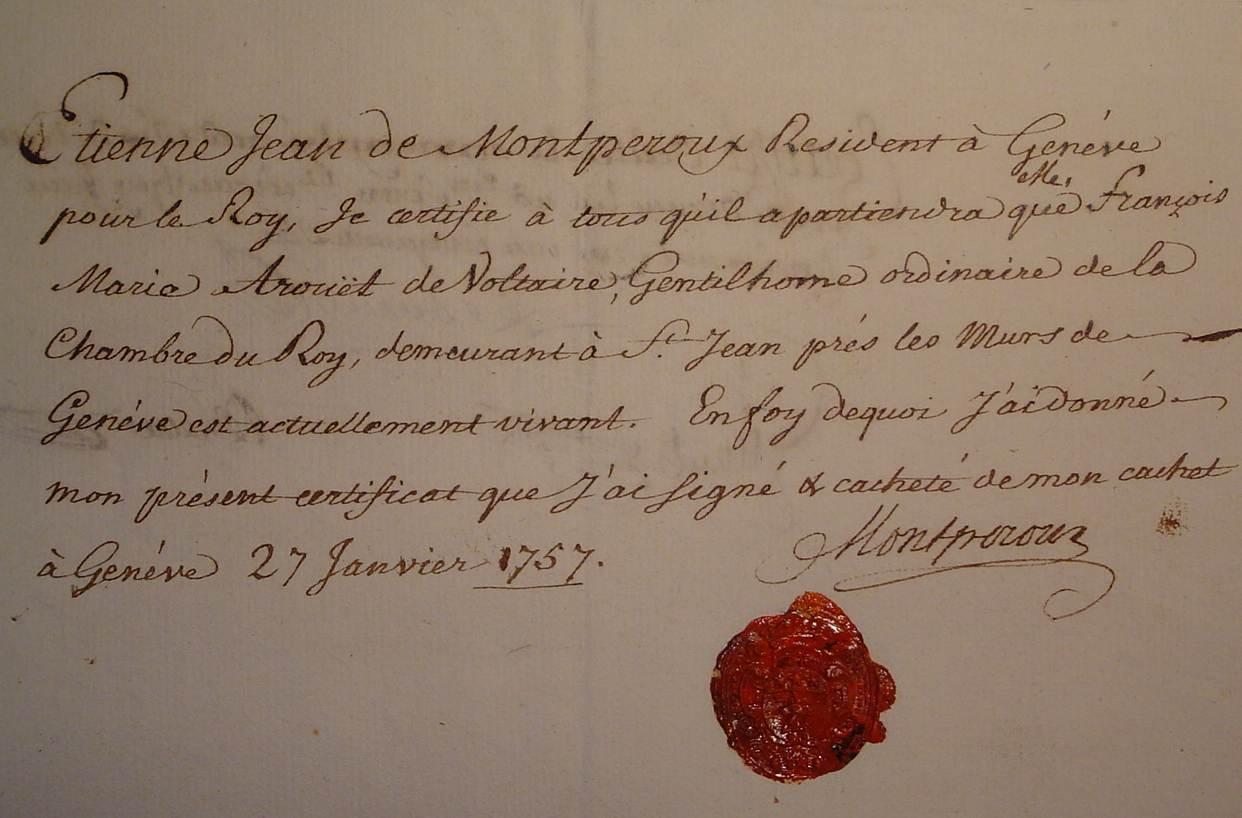 Etienne Jean de Montperoux Resident à Genéve
pour le Roy, Je certifie à tous qu'il apartiendra que Mre. François
Marie Aroüët de Voltaire, Gentilhome ordinaire de la
Chambre du Roy, demeurant à St. Jean prés les Murs de
Genéve est actuellement vivant. En foy dequoi J'ai donné
mon présent certificat que J'ai signé & cacheté de mon cachet
à Genéve 27 Janvier 1757.
Montperoux